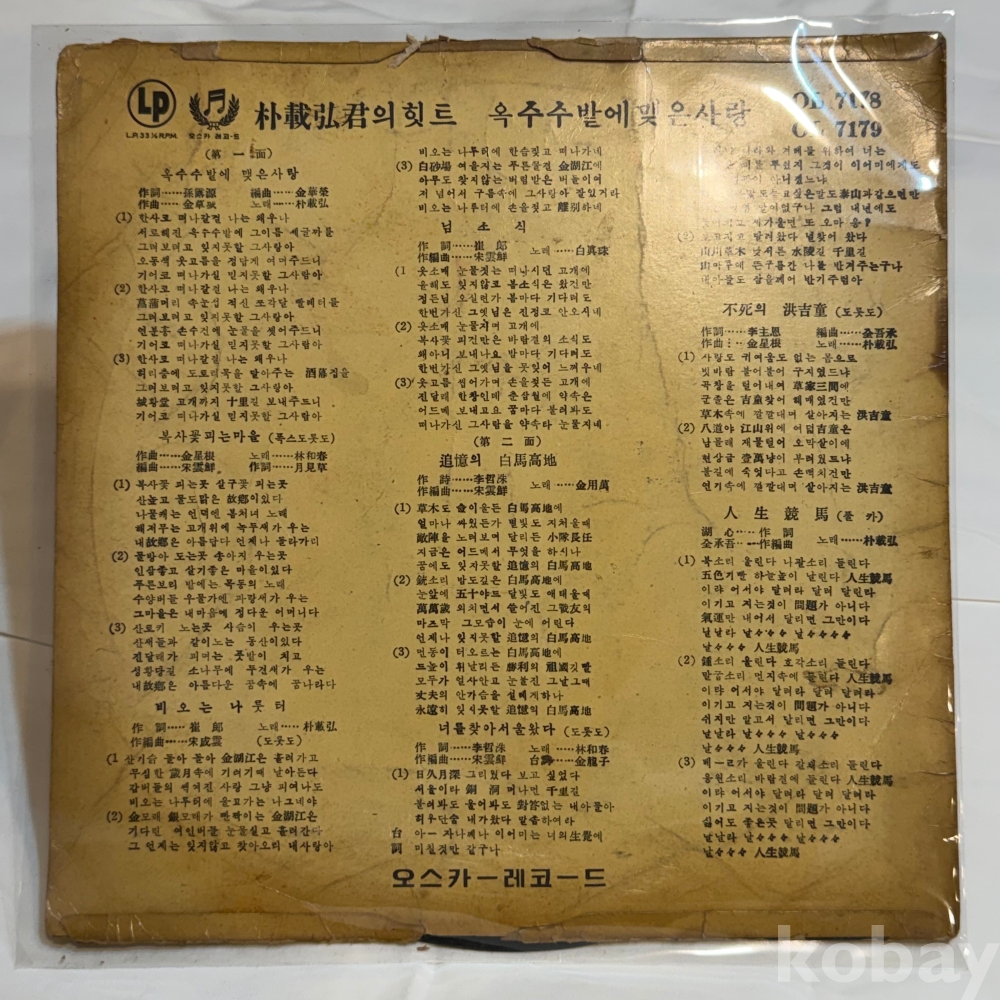 LP
L.P. 33⅓ R.P.M.
오스카 레코-드
朴載弘君의힛트 옥수수밭에맺은사랑
OL 7178
OL 7179
(第一面)
옥수수밭에 맺은사랑
作詞……孫露源 編曲……金華榮
作曲……金草 노래……朴載弘
(1) 한사코 떠나갈걸 나는 왜우나
서로해진 옥수수밭에 그이름 세글자를
그려보려고 잊지못할 그사랑아
오동색 옷고름을 정답게 여며주드니
기어코 떠나가실 믿지못할 그사랑아
(2) 한사코 떠나갈걸 나는 왜우나
菖蒲머리 속눈섭 적신 또각달 빨레터를
그려보려고 잊지못할 그사랑아
연분홍 손수건에 눈물을 씻어주드니
기어코 떠나가실 믿지못할 그사랑아
(3) 한사코 떠나갈걸 나는 왜우나
허리춤에 도토리묵을 달아주는 酒幕집을
그려보려고 잊지못할 그사랑아
城黃堂 고개까지 十里길 보내주드니
기어코 떠나가실 믿지못할 그사랑아
복사꽃피는마을 (폭스도롯도)
作曲……金星根 노래……林和春
編曲……宋雲鮮 作詞……月見草
(1) 복사꽃 피는곳 살구꽃 피는곳
산높고 물도맑은 故鄕이있다
나물캐는 언덕엔 봄처녀 노래
해저무는 고개위에 뉵두새가 우는
내故鄕은 아름답다 언제나 돌라가리
(2) 물방아 도는곳 송아지 우는곳
인삼좋고 살기좋은 마을이있다
푸른보리 밭에는 목동의 노래
수양버들 우물가엔 파랑새가 우는
그마을은 내마음에 정다운 어머니다
(3) 산토키 노는곳 사슴이 우는곳
산새들과 같이노는 동산이있다
진달래가 피며는 풋밭이 치고
성황당길 소나무에 우는
내故鄕은 아름다운 꿈속에 꿈나라다
비오는 나룻터
作詞……崔郞 노래……朴載弘
作編曲……宋成雲 (도롯도)
(1 산기슭 돌아 돌아 金湖江은 흘러가고
무심한 歲月속에 기러기떼 날아든다
갈버들의 꺽여진 사랑 그냥 피여나도
비오는 나루터에 울고가는 나그네야
(2) 金모래 銀모래가 반짝이는 金湖江은
기다린 여인버들 눈물실고 흘러간다
그 언제는 잊지않고 찾아오리 내사랑아
비오는 나루터에 한숨짓고 떠나가네
(3) 白砂場 여울지는 푸른물결 金湖江에
아무도 찾지않는 버림받은 버들이여
저 넘어서 구름속에 그사랑아 잘있거라
비오는 나루터에 손을짓고 離別하네
님소식
作詞……崔郞 노래……白眞珠
作編曲……宋雲鮮
(1 옷소매 눈물짓는 떠나시던 고개에
올해도 잊지않고 봄소식은 왔건만
정든님 오실런가 봄마다 기다려도
한번가신 그옛님은 진정코 안오시네
(2) 옷소매 눈물지며 고개에
복사꽃 피건만은 바람결의 소식도
왜아니 보내나요 밤마다 기다려도
한번갈신 그옛님을 못잊어 느껴우네
(3) 옷고름 씹어가며 손을짓든 고개에
진달래 한창인데 춘삼월에 약속은
어드메 보내고요 꿈마다 불러봐도
떠나가신 그사람을 약속타 눈물지네
(第二面)
追憶의 白馬高地
作詩……李哲洙 노래……金用萬
作編曲……宋雲鮮
(1) 草木도 숨이울든 白馬高地에
얼마나 싸웠든가 별빛도 지처울때
敵陣을 노려보며 달리든 小隊長任
지금은 어드메서 무엇을 하시나
꿈에도 잊지못할 追憶의 白馬高地
(2) 銃소리 밤도깊은 白馬高地에
눈앞에 五十야드 달빛도 애태울때
萬萬歲 외치면서 쓸어진 그戰友의
마즈막 그모습이 눈에 어린다
언제나 잊지못할 追憶의 白馬高地
(3) 먼동이 터오르는 白馬高地에
드높이 휘날리든 勝利의 祖國깃발
모두가 얼사안고 눈물진 그날그때
丈夫의 안가슴을 설레게하나
永遠히 잊지못할 追憶의 白馬高地
너를찾아서울왔다 (도롯도)
作詞……李哲洙 노래……林和春
作編曲……宋雲鮮 台詞……金龍子
(1) 日久月深 그리웠다 보고 싶었다
서울이라 떠나면 千里길
불려봐도 울어봐도 對答없는 내아들아
허우단숨 내가왔다 말좀하여라
台詞 아ー 자나깨나 이어미는 너의生覺에
미칠것만 같구나
나라와 겨레를 위하여 너는
이어미에게도
아니겠느냐
말도泰山과같으련만
알아었구나 그럼 내년에도
또 오마 응?
(2) 달려왔다 널찾어 왔다
山川草木 낯서른 水陵길 千里길
山마루에 뜬구름만 나를 반겨주는구나
내아들도 살플레어 반기주렴아
不死의 洪吉童 (도롯도)
作詞……李主恩 編曲……全吾承
作曲……金星根 노래……朴載弘
(1) 사랑도 귀여움도 없는 몸으로
빗바람 불어불어 구지였드냐
곡창을 털어내여 草家三間에
군졸은 吉童찾어 헤매였건만
草木속에 깔깔대며 살아지는 洪吉童
(2) 八道야 江山위에 어덟吉童은
남몰래 재물털어 오막살이에
현상금 壹萬냥이 무러웠드냐
불길에 죽엇다고 손벽치건만
연기속에 깔깔대며 살아지는 洪吉童
人生競馬 (폴카)
湖心……作詞
全承吾……作編曲 노래……朴載弘
(1) 북소리 울린다 나팔소리 들린다
五色기빨 하늘높이 날린다 人生競馬
이랴 어서야 달려라 달려 달린다
이기고 지는것이 問題가 아니다
氣運만 내어서 달리면 그만이다
날날라 날々々 날々々々
날々々々 人生競馬
(2) 鍾소리 울린다 호각소리 들린다
말굽소리 먼지속에 들린다 人生競馬
이랴 어서야 달려라 달려 달려라
이기고 지는것이 問題가 아니다
쉬지만 말고서 달리면 그만이다
날날라 날々々 날々々々
날々々々 人生競馬
(3) 베ー르가 울린다 갈채소리 들린다
응원소리 바람결에 들린다 人生競馬
이랴 어서야 달려라 달려 달려라
이기고 지는것이 問題가 아니다
넓어도 좋은곳 달리면 그만이다
날날라 날々々 날々々々
날々々々 人生競馬
오스카ー레코ード
kobay